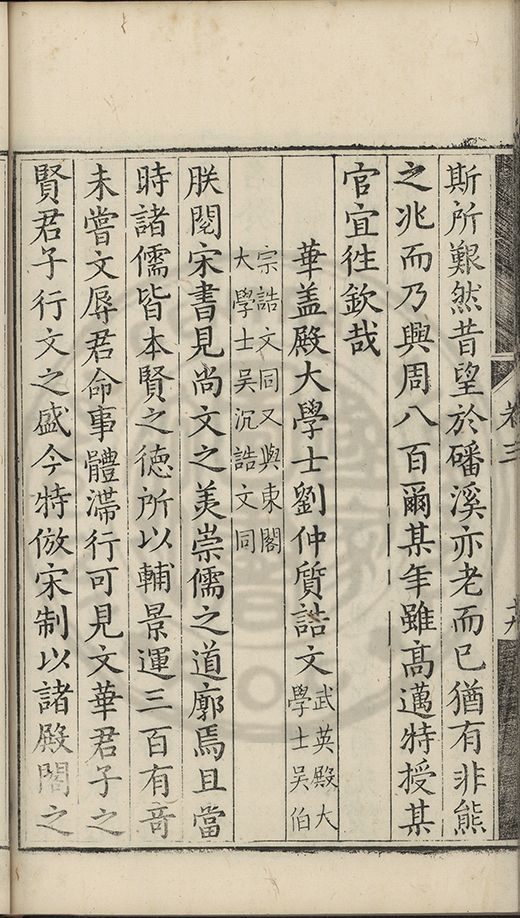 斯所艱然昔望於磻溪亦老而已猶有非熊
之兆而乃興周八百爾某年雖高邁特授某
官宜徃欽哉
華盖殿大學士劉仲質誥文武英殿大
學士吳伯
宗誥文同又與東閣
大學士吳沉誥文同
朕閱宋書見尚文之美崇儒之道廓焉且當
時諸儒皆本賢之徳所以輔景運三百有竒
未嘗文辱君命事體滯行可見文華君子之
賢君子行文之盛今特倣宋制以諸殿閣之
卷三